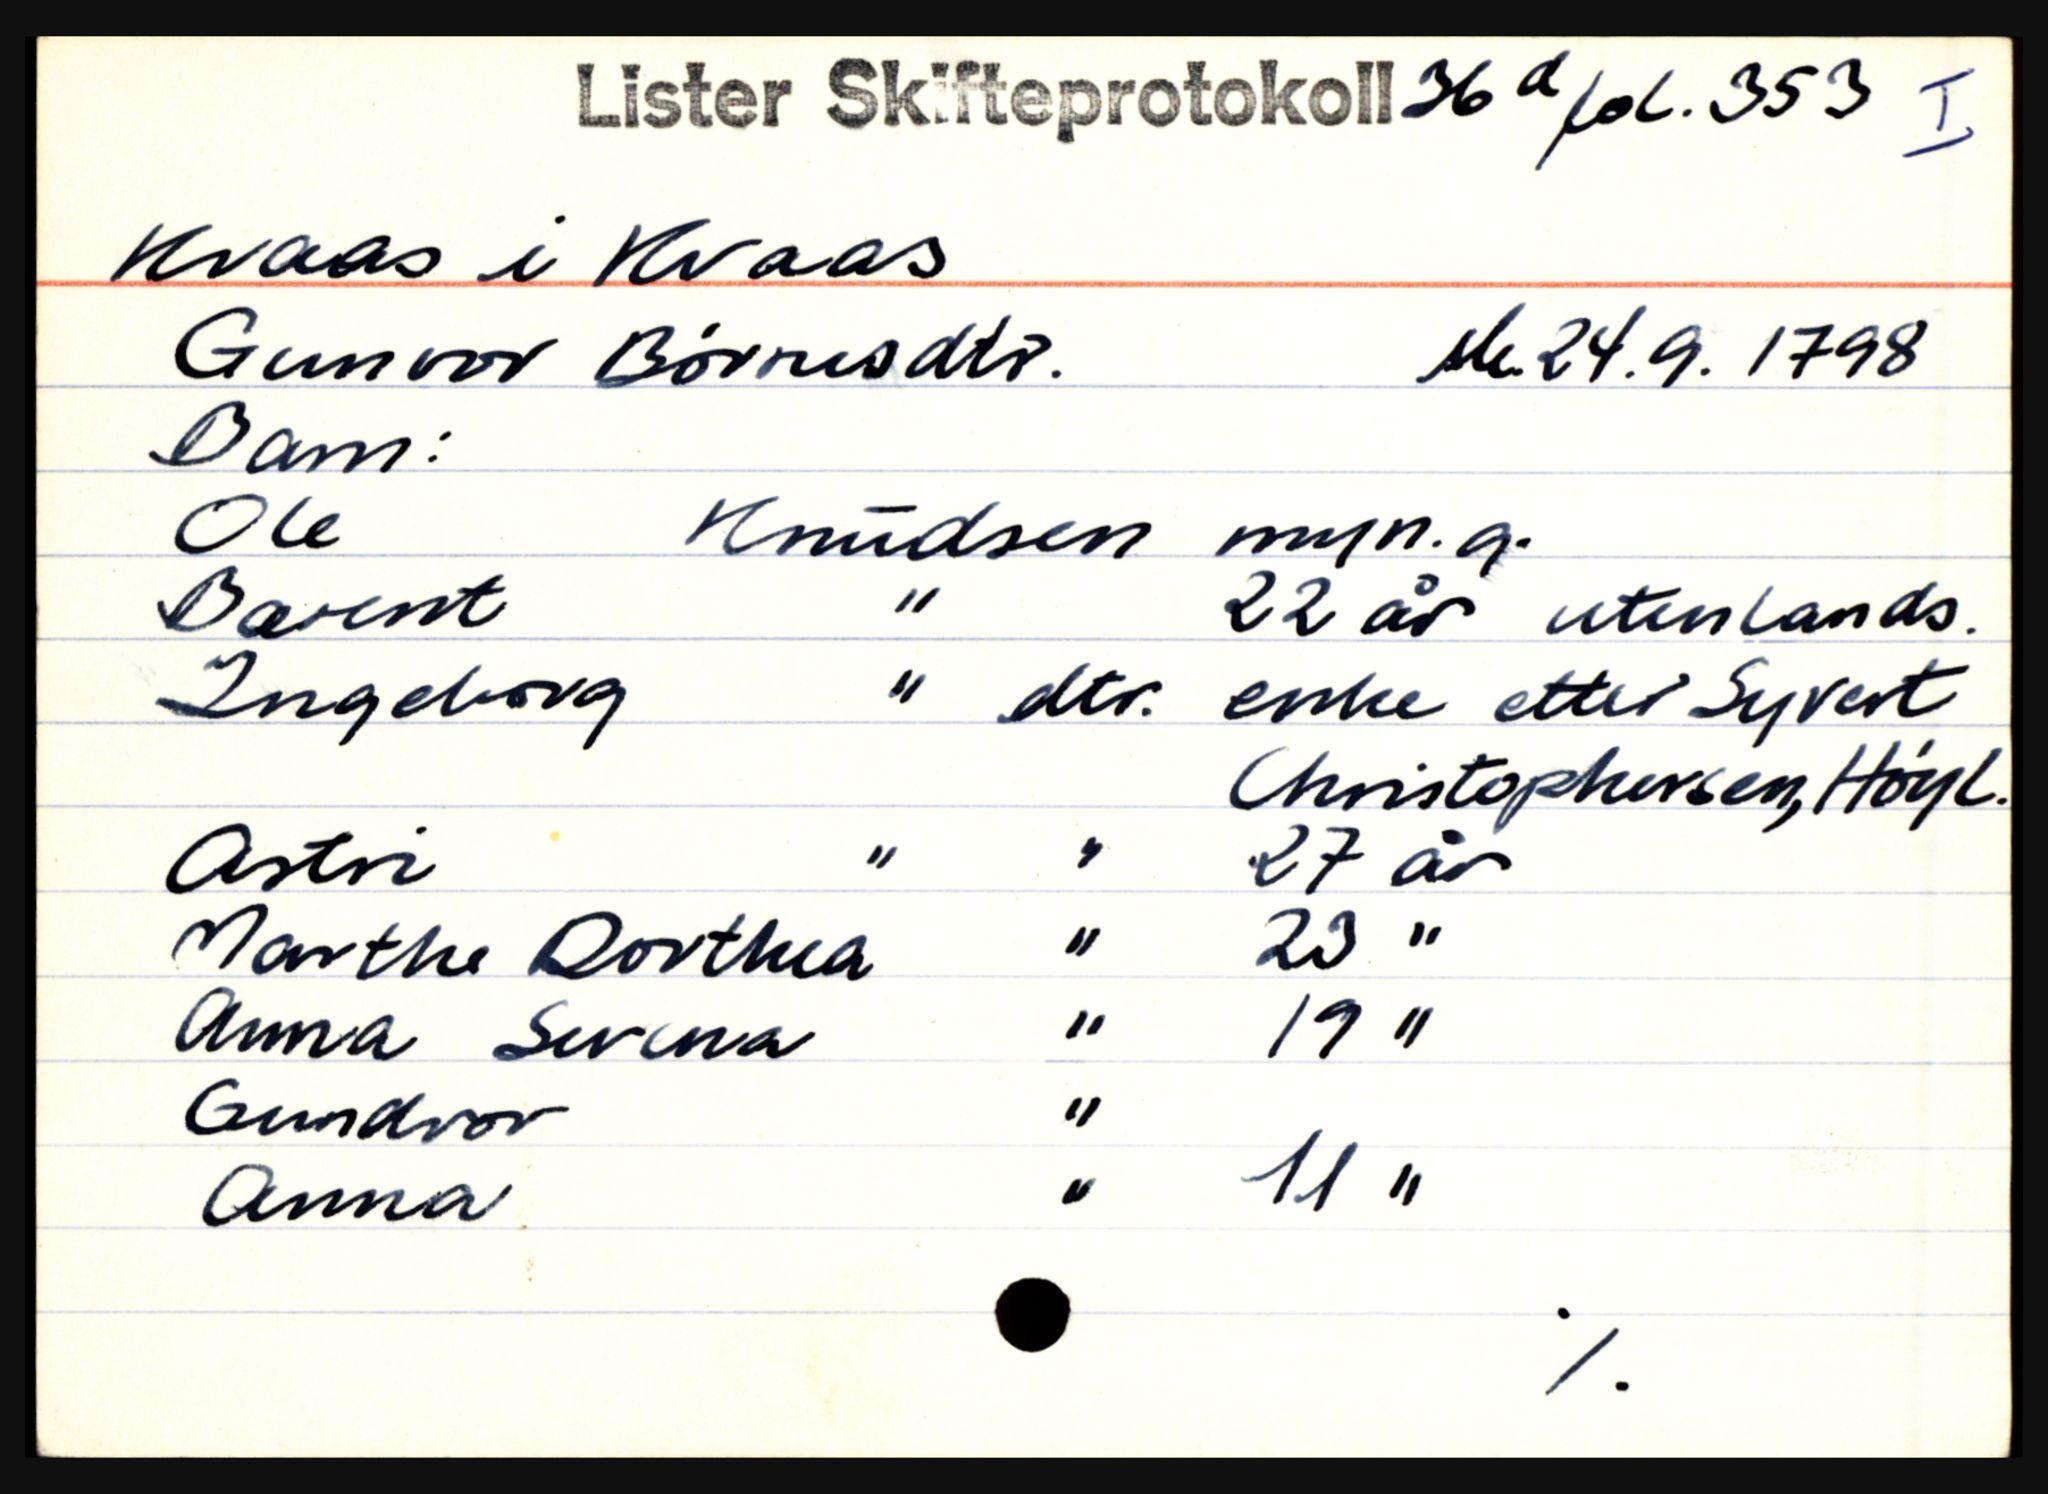 Lister Skifteprotokoll 36 d fol. 353 I
Kvaas i Kvaas
Gunvor Börruesdtr. sk. 24.9. 1798
Barn:
Ole Knudsen myn. g.
Barent " 22 år utenlands.
Ingeborg " dtr. enke etter Syvert
Christophersen, Höyl.
Astri " " 27 år
Marthe Dorthea " 23 "
Anna Serena " 19 "
Gundvor "
Anna " 11 "
./.